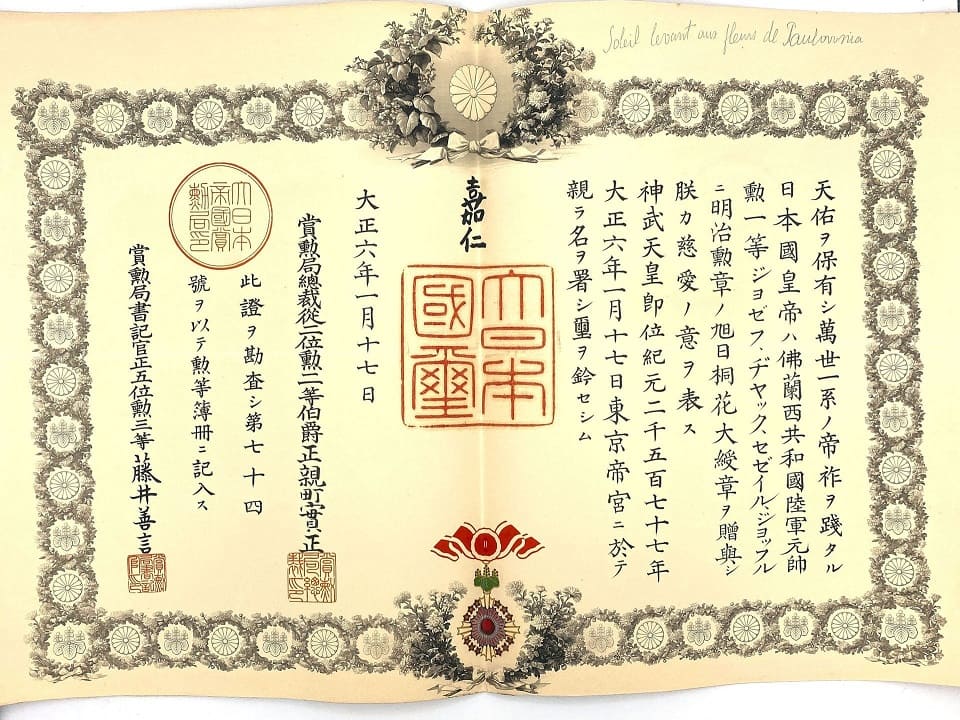 Soleil levant aux fleurs de Paulownia
天佑ヲ保有シ萬世一系ノ帝祚ヲ踐タル
日本國皇帝ハ佛蘭西共和國陸軍元帥
勲一等ジョゼフ、ヂヤック、セゼイル、ジョッフル
ニ明治勲章ノ旭日桐花大綬章ヲ贈與シ
朕カ慈愛ノ意ヲ表ス
神武天皇即位紀元二千五百七十七年
大正六年一月十七日東京帝宮ニ於テ
親ラ名ヲ署シ璽ヲ鈐セシム
嘉仁
大日本
國璽
大正六年一月十七日
賞勲局總裁從二位勲一等伯爵正親町實正
此證ヲ勘査シ第七十四
號ヲ以テ勲等簿册ニ記入ス
大日本
帝國賞
勲局印
賞勲局書記官正五位勲三等藤井善言